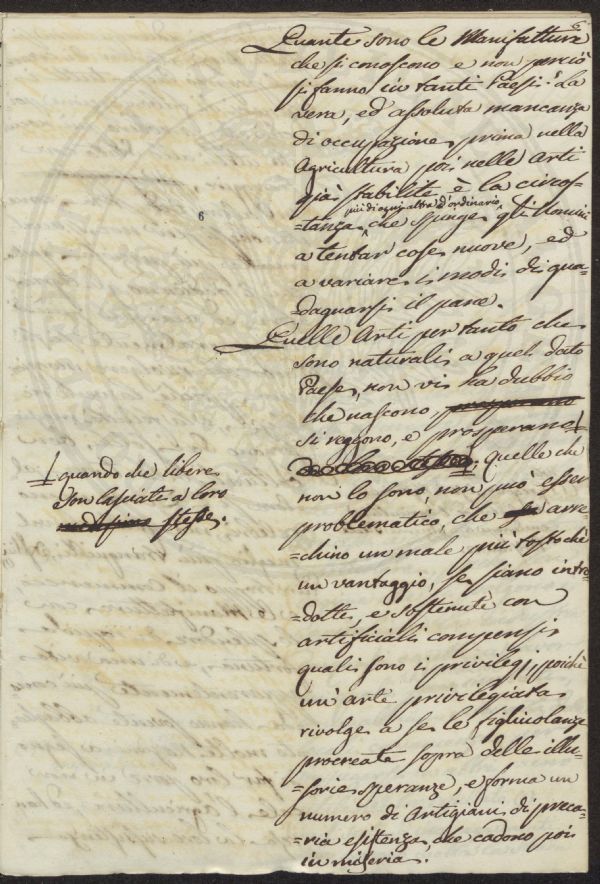 6
Quante sono le Manifatture
che si conoscono e non perciò
si fanno in tanti Paesi. La
vera, ed assoluta mancanza
di occupazione, prima nella
Agricultura poi nelle arti
già stabilite è la circos-
più di ogni altra d'ordinario
=tanza, che spinge gli Uomini
a tentar cose nuove, ed
a variare i modi di gua-
dagnarsi il pane.
Quelle Arti per tanto che
sono naturali a quel dato
Paese, non vi ha dubbio
che nascono, prosperano
si reggono, e prosperano
quelle che
non lo sono, non può esser
problematico, che arre
=chino un male più tosto che
un vantaggio, se siano intro
=dotte, e sostenute con
artificiali compensi
quali sono i privilegj, poichè
un'arte privilegiata
rivolge a se le figliuolanze
procreate sopra delle illu-
sorie speranze, e forma un
numero di Artigiani di preca-
=ria esistenza, che cadono poi
in miseria.
6
quando che libere
son lasciate a loro
stesse.